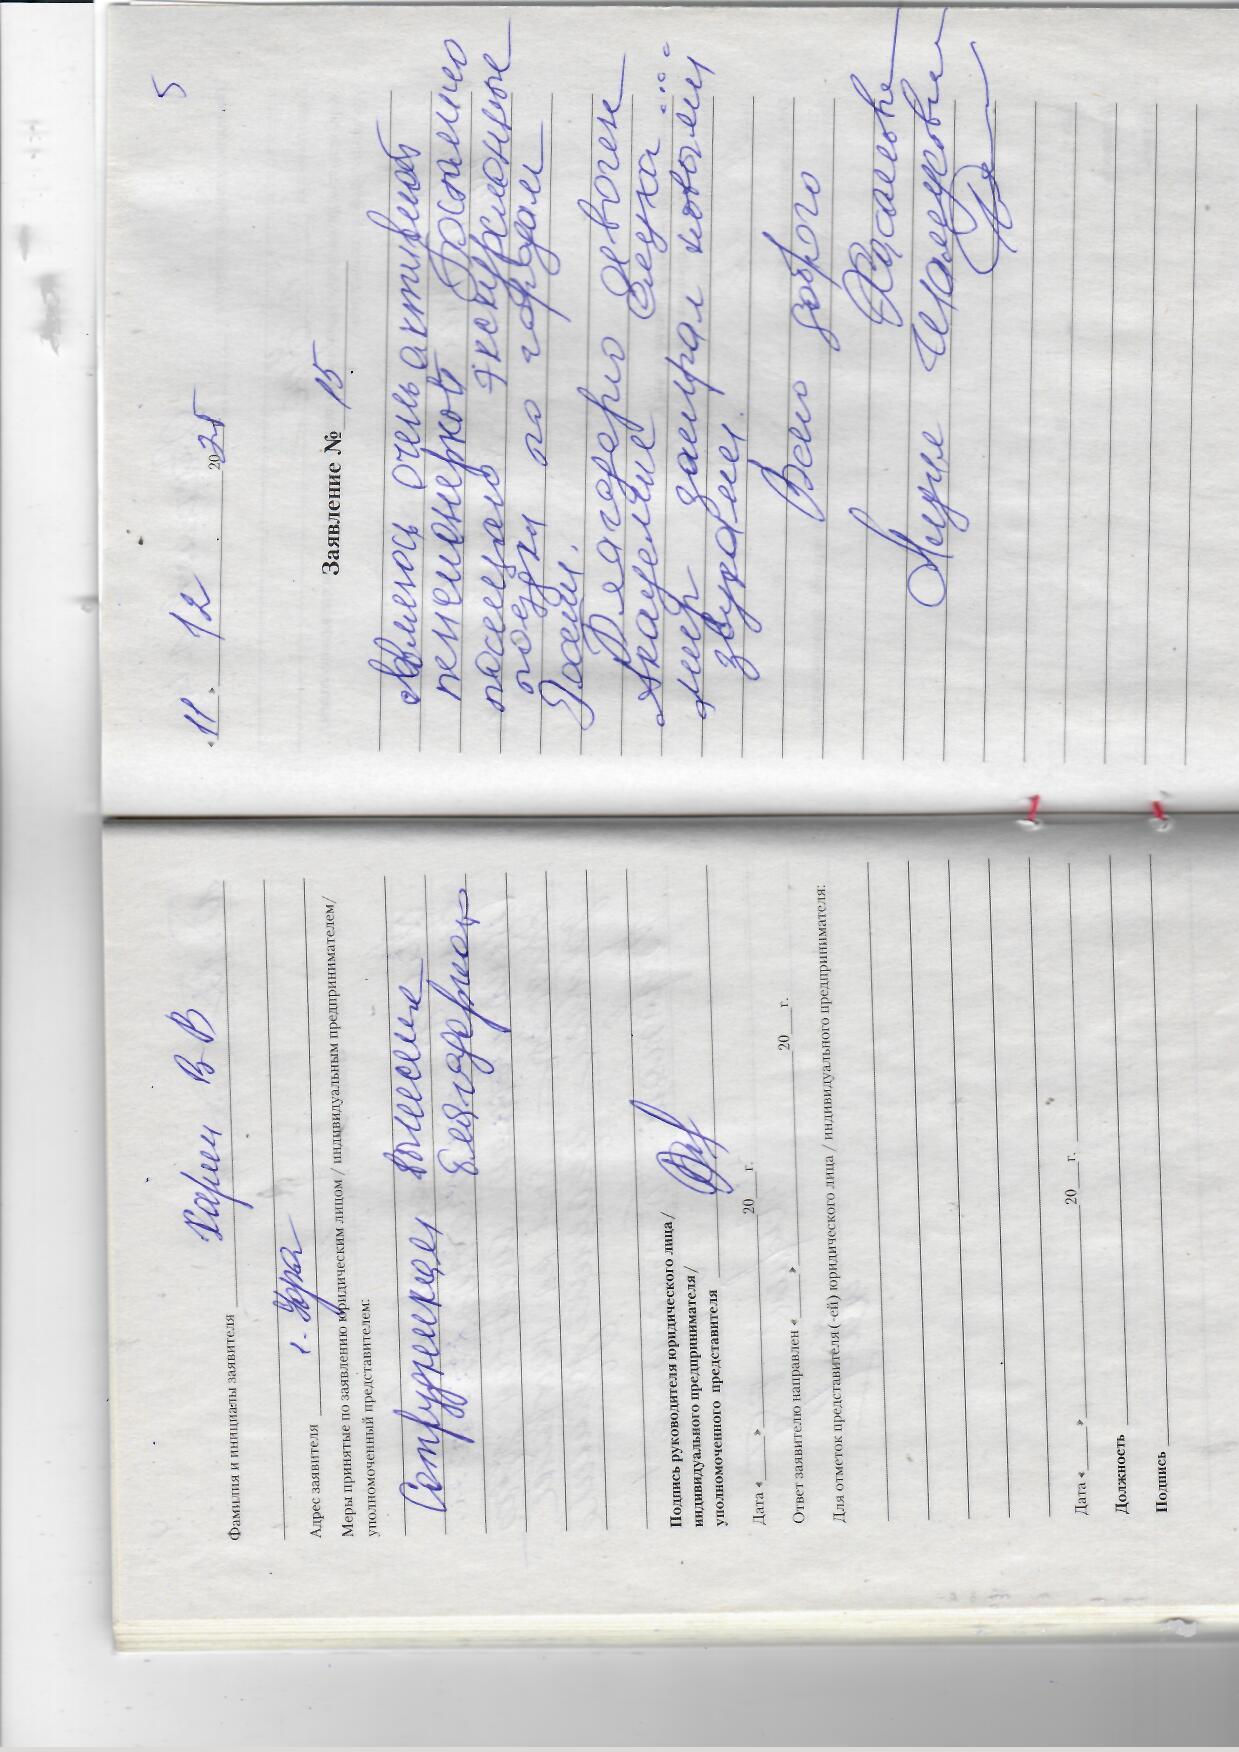 Фамилия и инициалы заявителя Харин В В
Адрес заявителя г. Уфа
Меры принятые по заявлению юридическим лицом / индивидуальным предпринимателем/
уполномоченный представителем:
Сотруднику вынесена
благодарность
Подпись руководителя юридического лица/
индивидуального предпринимателя/
уполномоченного представителя
Дата « » 20 г.
Ответ заявителю направлен « » 20 г.
Для отметок представителя(-ей) юридического лица / индивидуального предпринимателя:
Дата « » 20 г.
Должность
Подпись
5
«11» 12 2025
Заявление № 15
Являюсь очень активной
пенсионеркой. Постоянно
посещаю экскурсионные
поездки по городам
России.
Благодарю девочек
Академия слуха ...
мир заиграл новыми
звуками.
Всего доброго